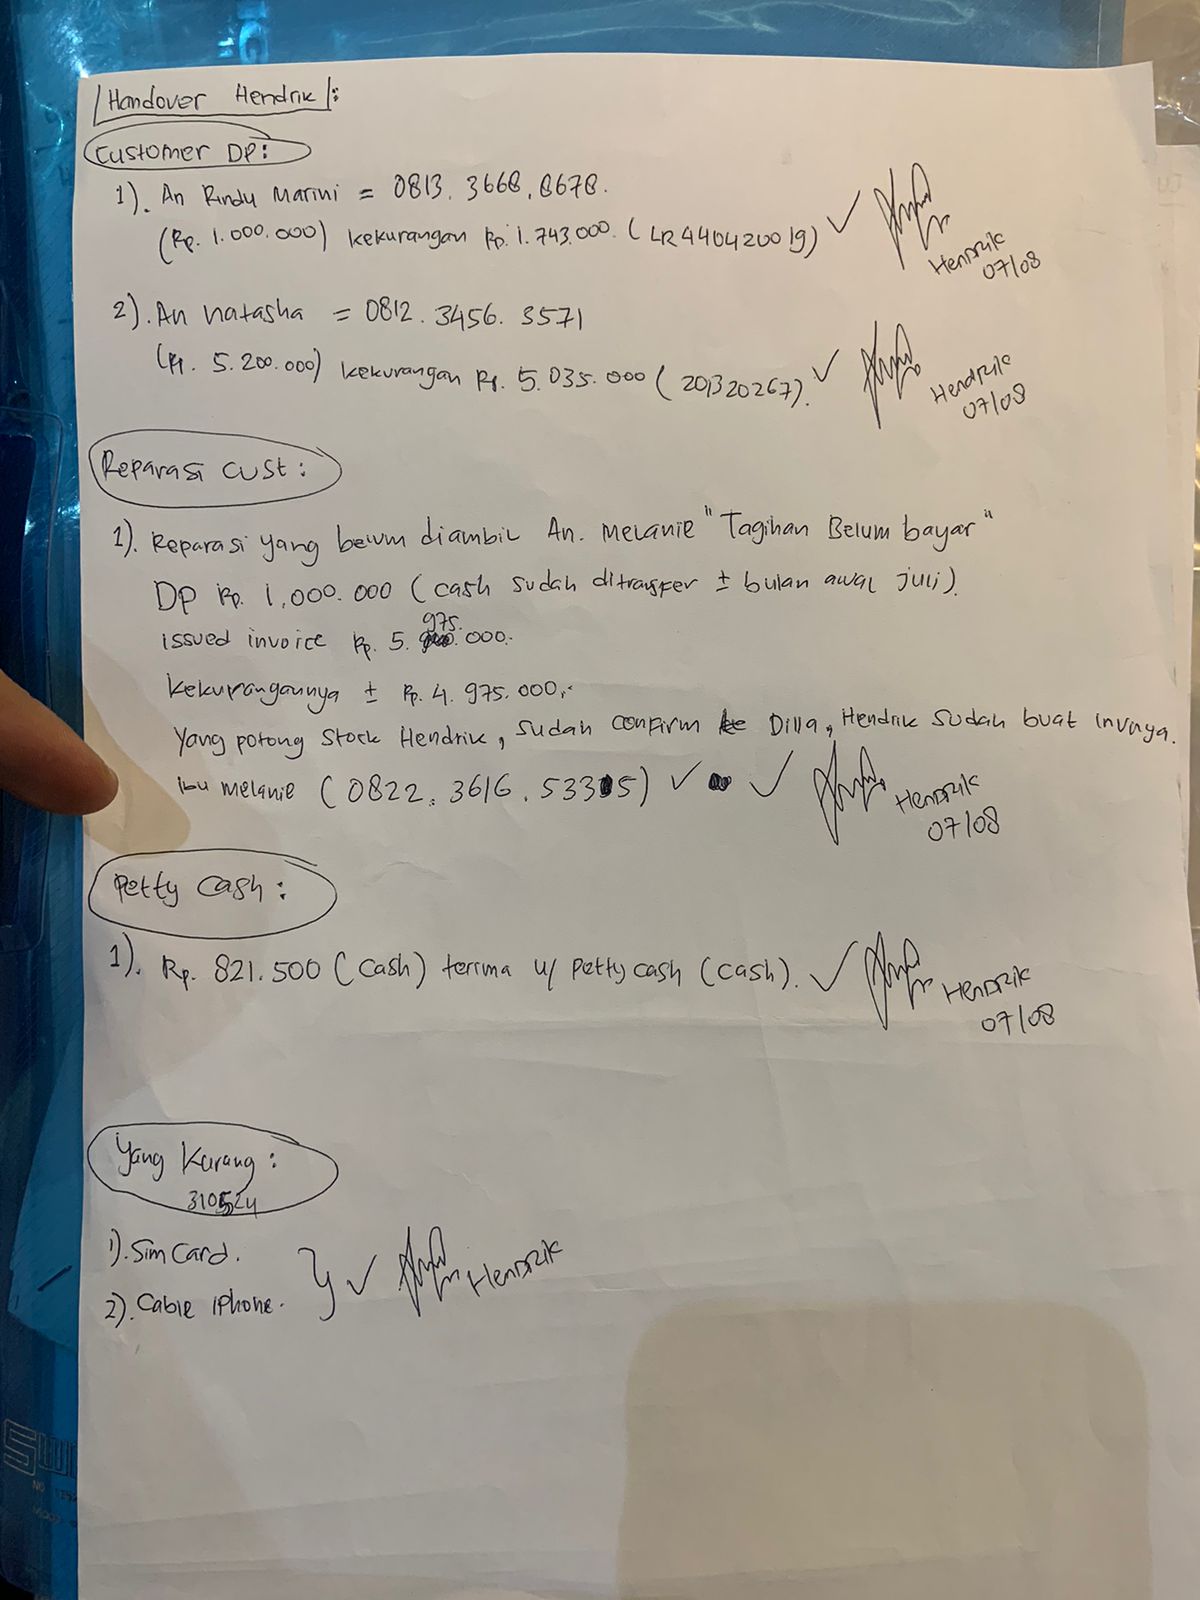 Handover Hendrik :
Customer DP :
1). An Rindu Marini = 0813. 3668. 8678.
(Rp. 1.000.000) kekurangan Rp. 1.743.000. (LR440420019) ✓
Hendrik
07/08
2). An natasha = 0812. 3456. 3571
(Rp. 5.200.000) kekurangan Rp. 5.035.000 (201320267). ✓
Hendrik
07/08
Reparasi Cust :
1). Reparasi yang belum diambil An. Melanie "Tagihan Belum bayar"
DP Rp. 1.000.000 (cash sudah ditransfer ± bulan awal juli).
issued invoice Rp. 5. 975. 000.-
Kekurangannya ± Rp. 4. 975. 000,-
Yang potong Stock Hendrik, sudah confirm ke Dilla, Hendrik sudah buat invnya.
Ibu Melanie (0822. 3616. 5335) ✓ ✓
Hendrik
07/08
Petty Cash :
1). Rp. 821.500 (Cash) terima u/ Petty cash (cash). ✓
Hendrik
07/08
Yang Kurang :
310524
1). Sim Card.
2). Cable iPhone.
✓ Hendrik